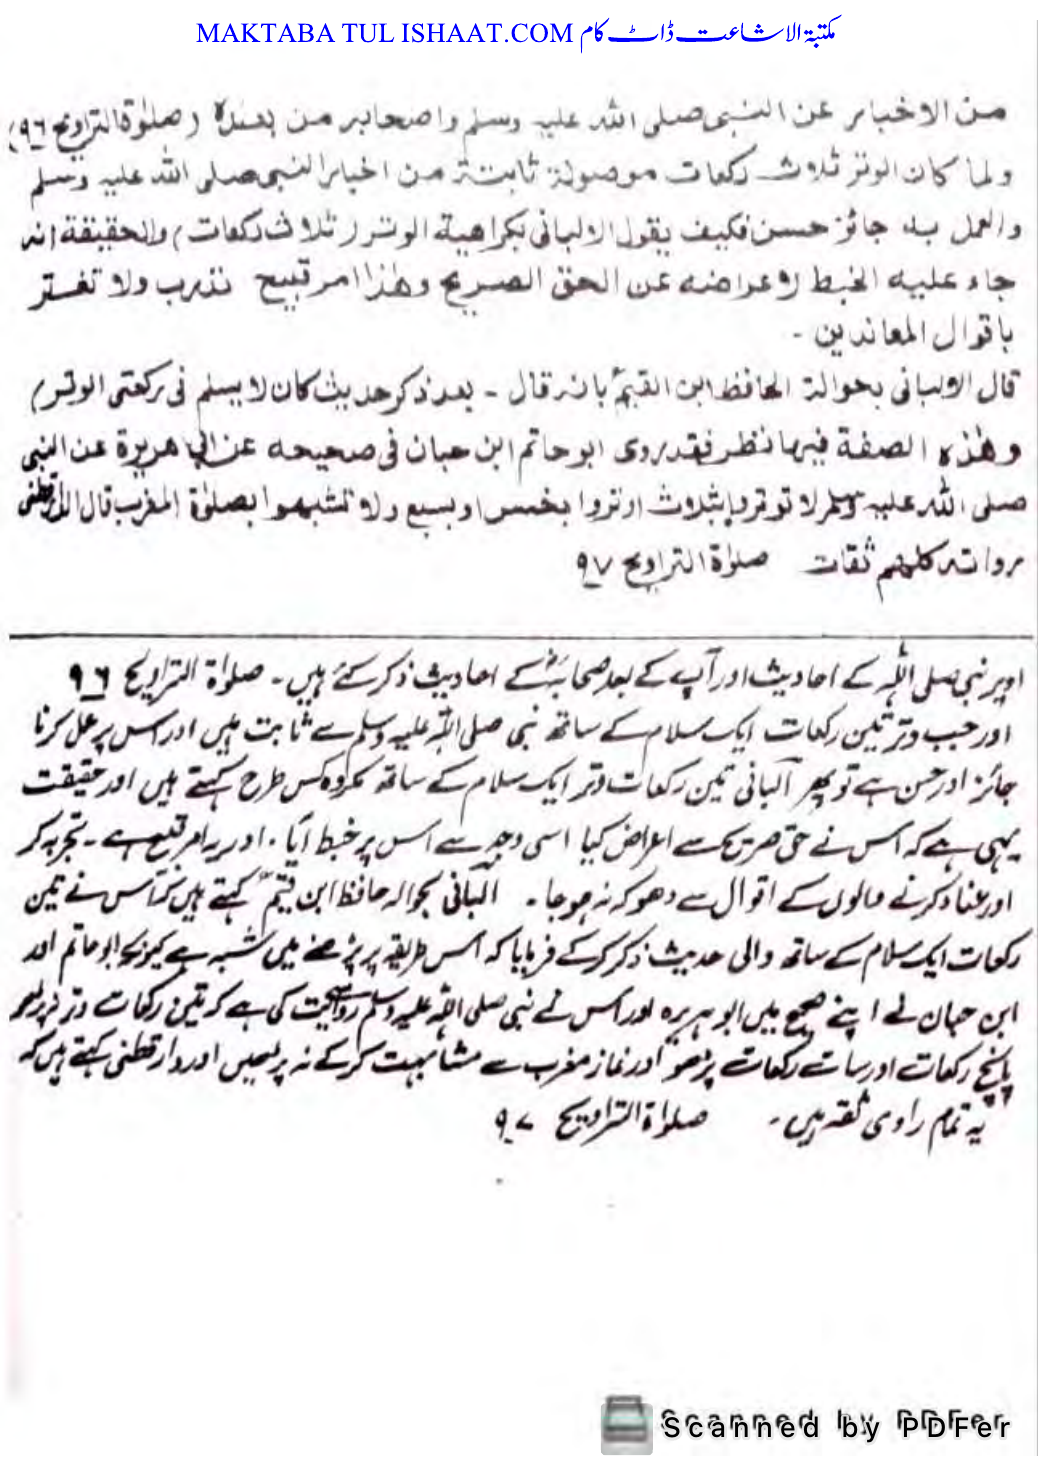 MAKTABA TUL ISHAAT.COM مکتبۃ الاشاعت ڈاٹ کام
من الاخبار عن النبی صلی اللہ علیہ وسلم واصحابہ من بعدہ (صلوٰۃ التراویح ۹٦)
ولما کان الوتر ثلاث رکعات موصولۃ ثابتۃ من اخبار النبی صلی اللہ علیہ وسلم
والعمل بہ جائز حسن فکیف یقول الالبانی بکراھیۃ الوتر (ثلاث رکعات) والحقیقۃ انہ
جاء علیہ الخبط لاعراضہ عن الحق الصریح وھٰذا امر قبیح تدرب ولا تغتر
باقوال المعاندین ۔
قال الالبانی بحوالۃ الحافظ ابن القیمؒ بانہ قال ۔ بعد ذکر حدیث کان لا یسلم فی رکعتی الوتر)
وھٰذہ الصفۃ فیہا نظر فقد روی ابو حاتم ابن حبان فی صحیحہ عن ابی ھریرۃ عن النبی
صلی اللہ علیہ وسلم لا توتروا بثلاث اوتروا بخمس او بسبع ولا تشبھوا بصلوٰۃ المغرب قال الدارقطنی
رواتہ کلھم ثقات صلوٰۃ التراویح ۹۷
اوپر نبی صلی اللہ کے احادیث اور آپ کے بعد صحابہؓ کے احادیث ذکر کئے ہیں۔ صلوٰۃ التراویح ۹٦
اور جب وتر تین رکعات ایک سلام کے ساتھ نبی صلی اللہ علیہ وسلم سے ثابت ہیں اور اس پر عمل کرنا
جائز اور حسن ہے تو پھر البانی تین رکعات وتر ایک سلام کے ساتھ مکروہ کس طرح کہتے ہیں اور حقیقت
یہی ہے کہ اس نے حق صریح سے اعراض کیا اسی وجہ سے اس پر خبط آیا۔ اور یہ امر قبیح ہے۔ تجربہ کر
اور عناد کرنے والوں کے اقوال سے دھوکہ نہ ہو جا۔ البانی بحوالہ حافظ ابن قیمؒ کہتے ہیں کہ اس نے تین
رکعات ایک سلام کے ساتھ والی حدیث ذکر کر کے فرمایا کہ اس طریقے پر پڑھنے میں شبہ ہے کیونکہ ابو حاتم اور
ابن حبان نے اپنے صحیح میں ابو ہریرہ اور اس نے نبی صلی اللہ علیہ وسلم سے روایت کی ہے کہ تین رکعات وتر نہ پڑھو
پانچ رکعات اور سات رکعات پڑھو اور نماز مغرب سے مشابہت کر کے نہ پڑھیں اور دارقطنی کہتے ہیں کہ
یہ تمام راوی ثقہ ہیں۔ صلوٰۃ التراویح ۹۷
Scanned by PDFer